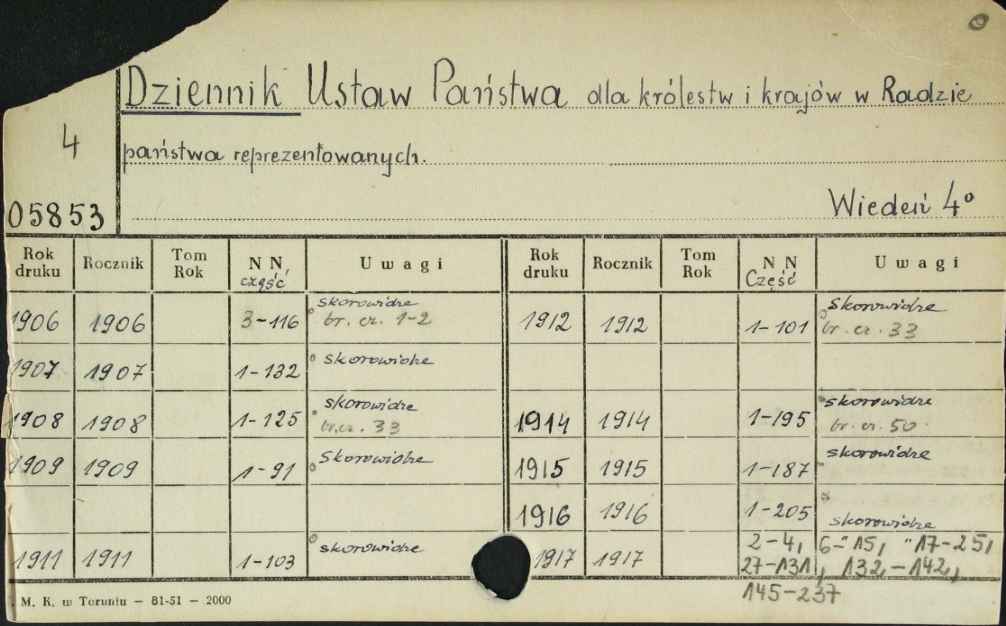 Dziennik Ustaw Państwa dla królestw i krajów w Radzie
4
państwa reprezentowanych.
05853
Wiedeń 4º
Rok druku Rocznik Tom Rok N N część Uwagi Rok druku Rocznik Tom Rok N N Część Uwagi
1906 1906 3-116 skorowidze br. cz. 1-2 1912 1912 1-101 skorowidze br. cz. 33
1907 1907 1-132 skorowidze
1908 1908 1-125 skorowidze br. cz. 33 1914 1914 1-195 skorowidze br. cz. 50
1909 1909 1-91 skorowidze 1915 1915 1-187 skorowidze
1916 1916 1-205 skorowidze
1911 1911 1-103 skorowidze 1917 1917 2-4, 6-15, 17-25,
27-131, 132-142,
145-237
M. K. w Toruniu — 81-51 — 2000